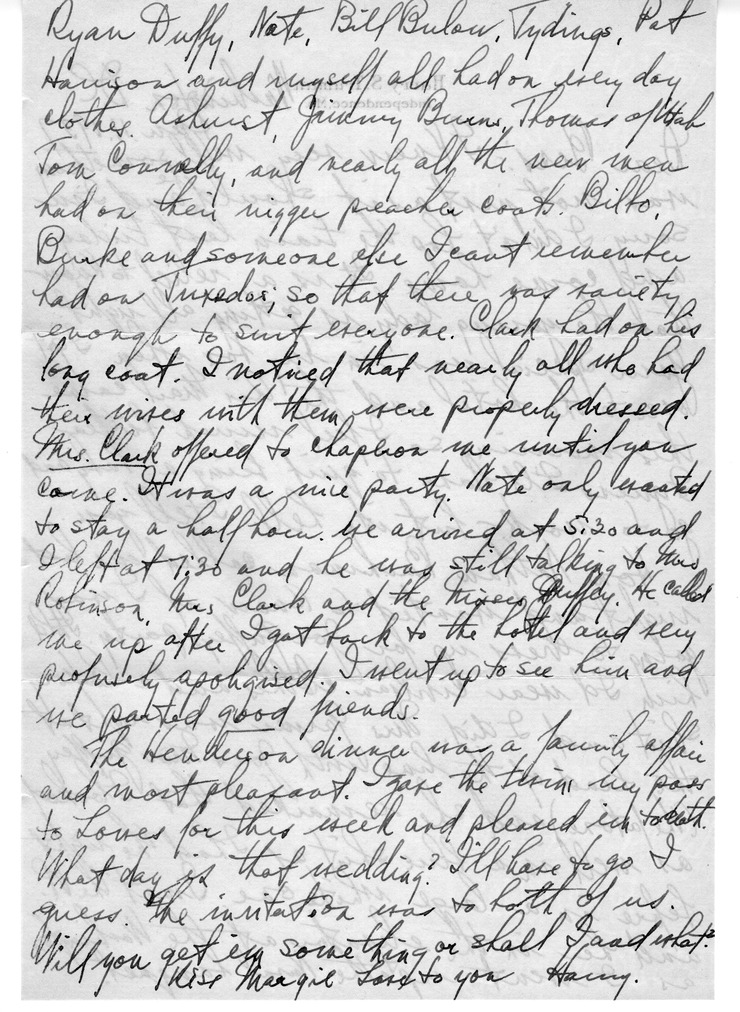 Ryan Duffy, Nate, Bill Bulow, Tydings, Pat
Harrison and myself all had on every day
clothes. Ashurst, Jimmy Burns, Thomas of Utah
Tom Connelly, and nearly all the new men
had on their nigger preacher coats. Bilbo,
Burke and someone else I cant remember
had on Tuxedos; so that there was variety
enough to suit everyone. Clark had on his
long coat. I noticed that nearly all who had
their wives with them were properly dressed.
Mrs. Clark offered to chaperon me until you
came. It was a nice party. Nate only wanted
to stay a half hour. We arrived at 5:30 and
I left at 7:30 and he was still talking to Mrs
Robinson, Mrs Clark and the Misses Duffey. He called
me up after I got back to the hotel and very
profusely apologised. I went up to see him and
we parted good friends.
The Henderson dinner was a family affair
and most pleasant. I gave the twins my pass
to Lowes for this week and pleased em to death.
What day is that wedding? I'll have to go I
guess. The invitation was to both of us.
Will you get em something or shall I and what?
Kiss Margie Love to you Harry.